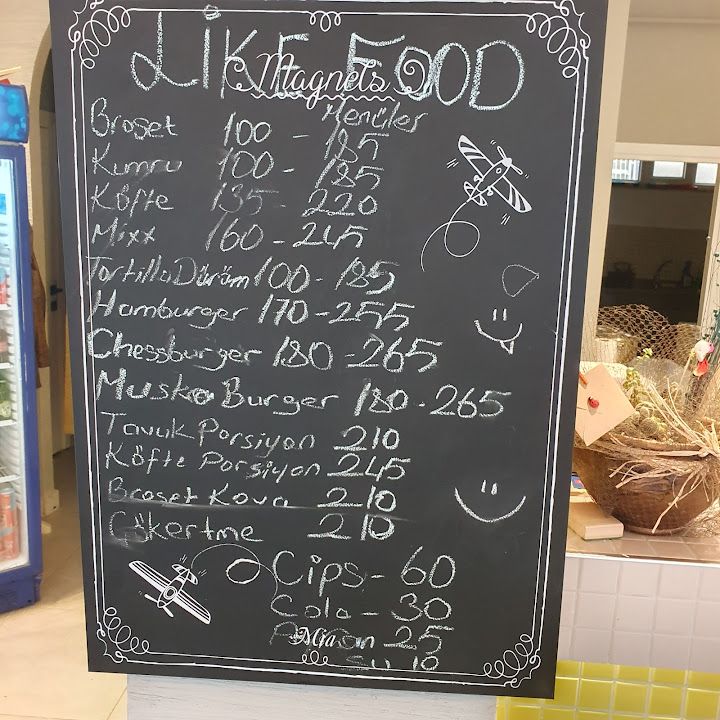 LİKE FOOD
Magnets
Menüler
Broset 100 - 185
Kumru 100 - 185
Köfte 135 - 220
Mixx 160 - 245
Tortilla Dürüm 100 - 185
Hamburger 170 - 255
Chessburger 180 - 265
Muska Burger 180 - 265
Tavuk Porsiyon 210
Köfte Porsiyon 245
Broset Kova 210
Çökertme 210
Cips - 60
Cola - 30
25
Mia
Su 10